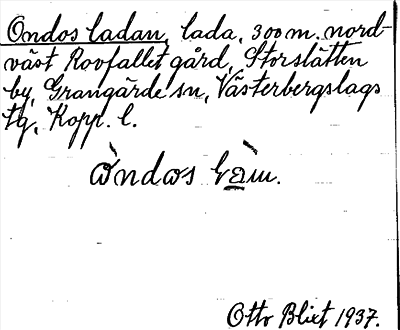 Ondos ladan, lada, 300 m. nord-
väst Rovfallet gård, Storslätten
by, Grangärde sn, Västerbergslags
tg, Kopp. l.
Otto Blixt 1937.